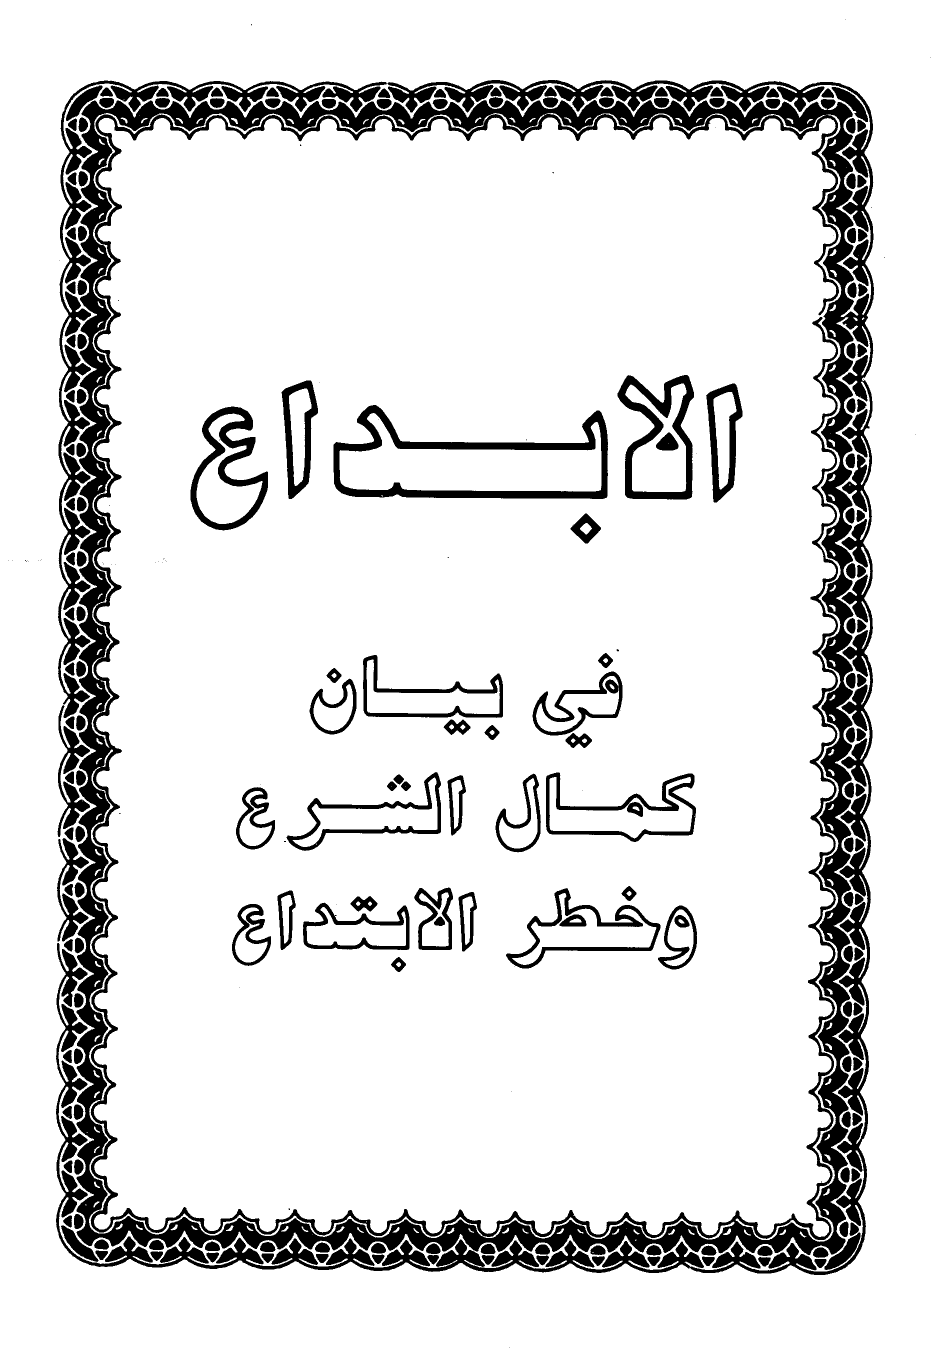 الابداع
في بيان
كمال الشرع
وخطر الابتداع